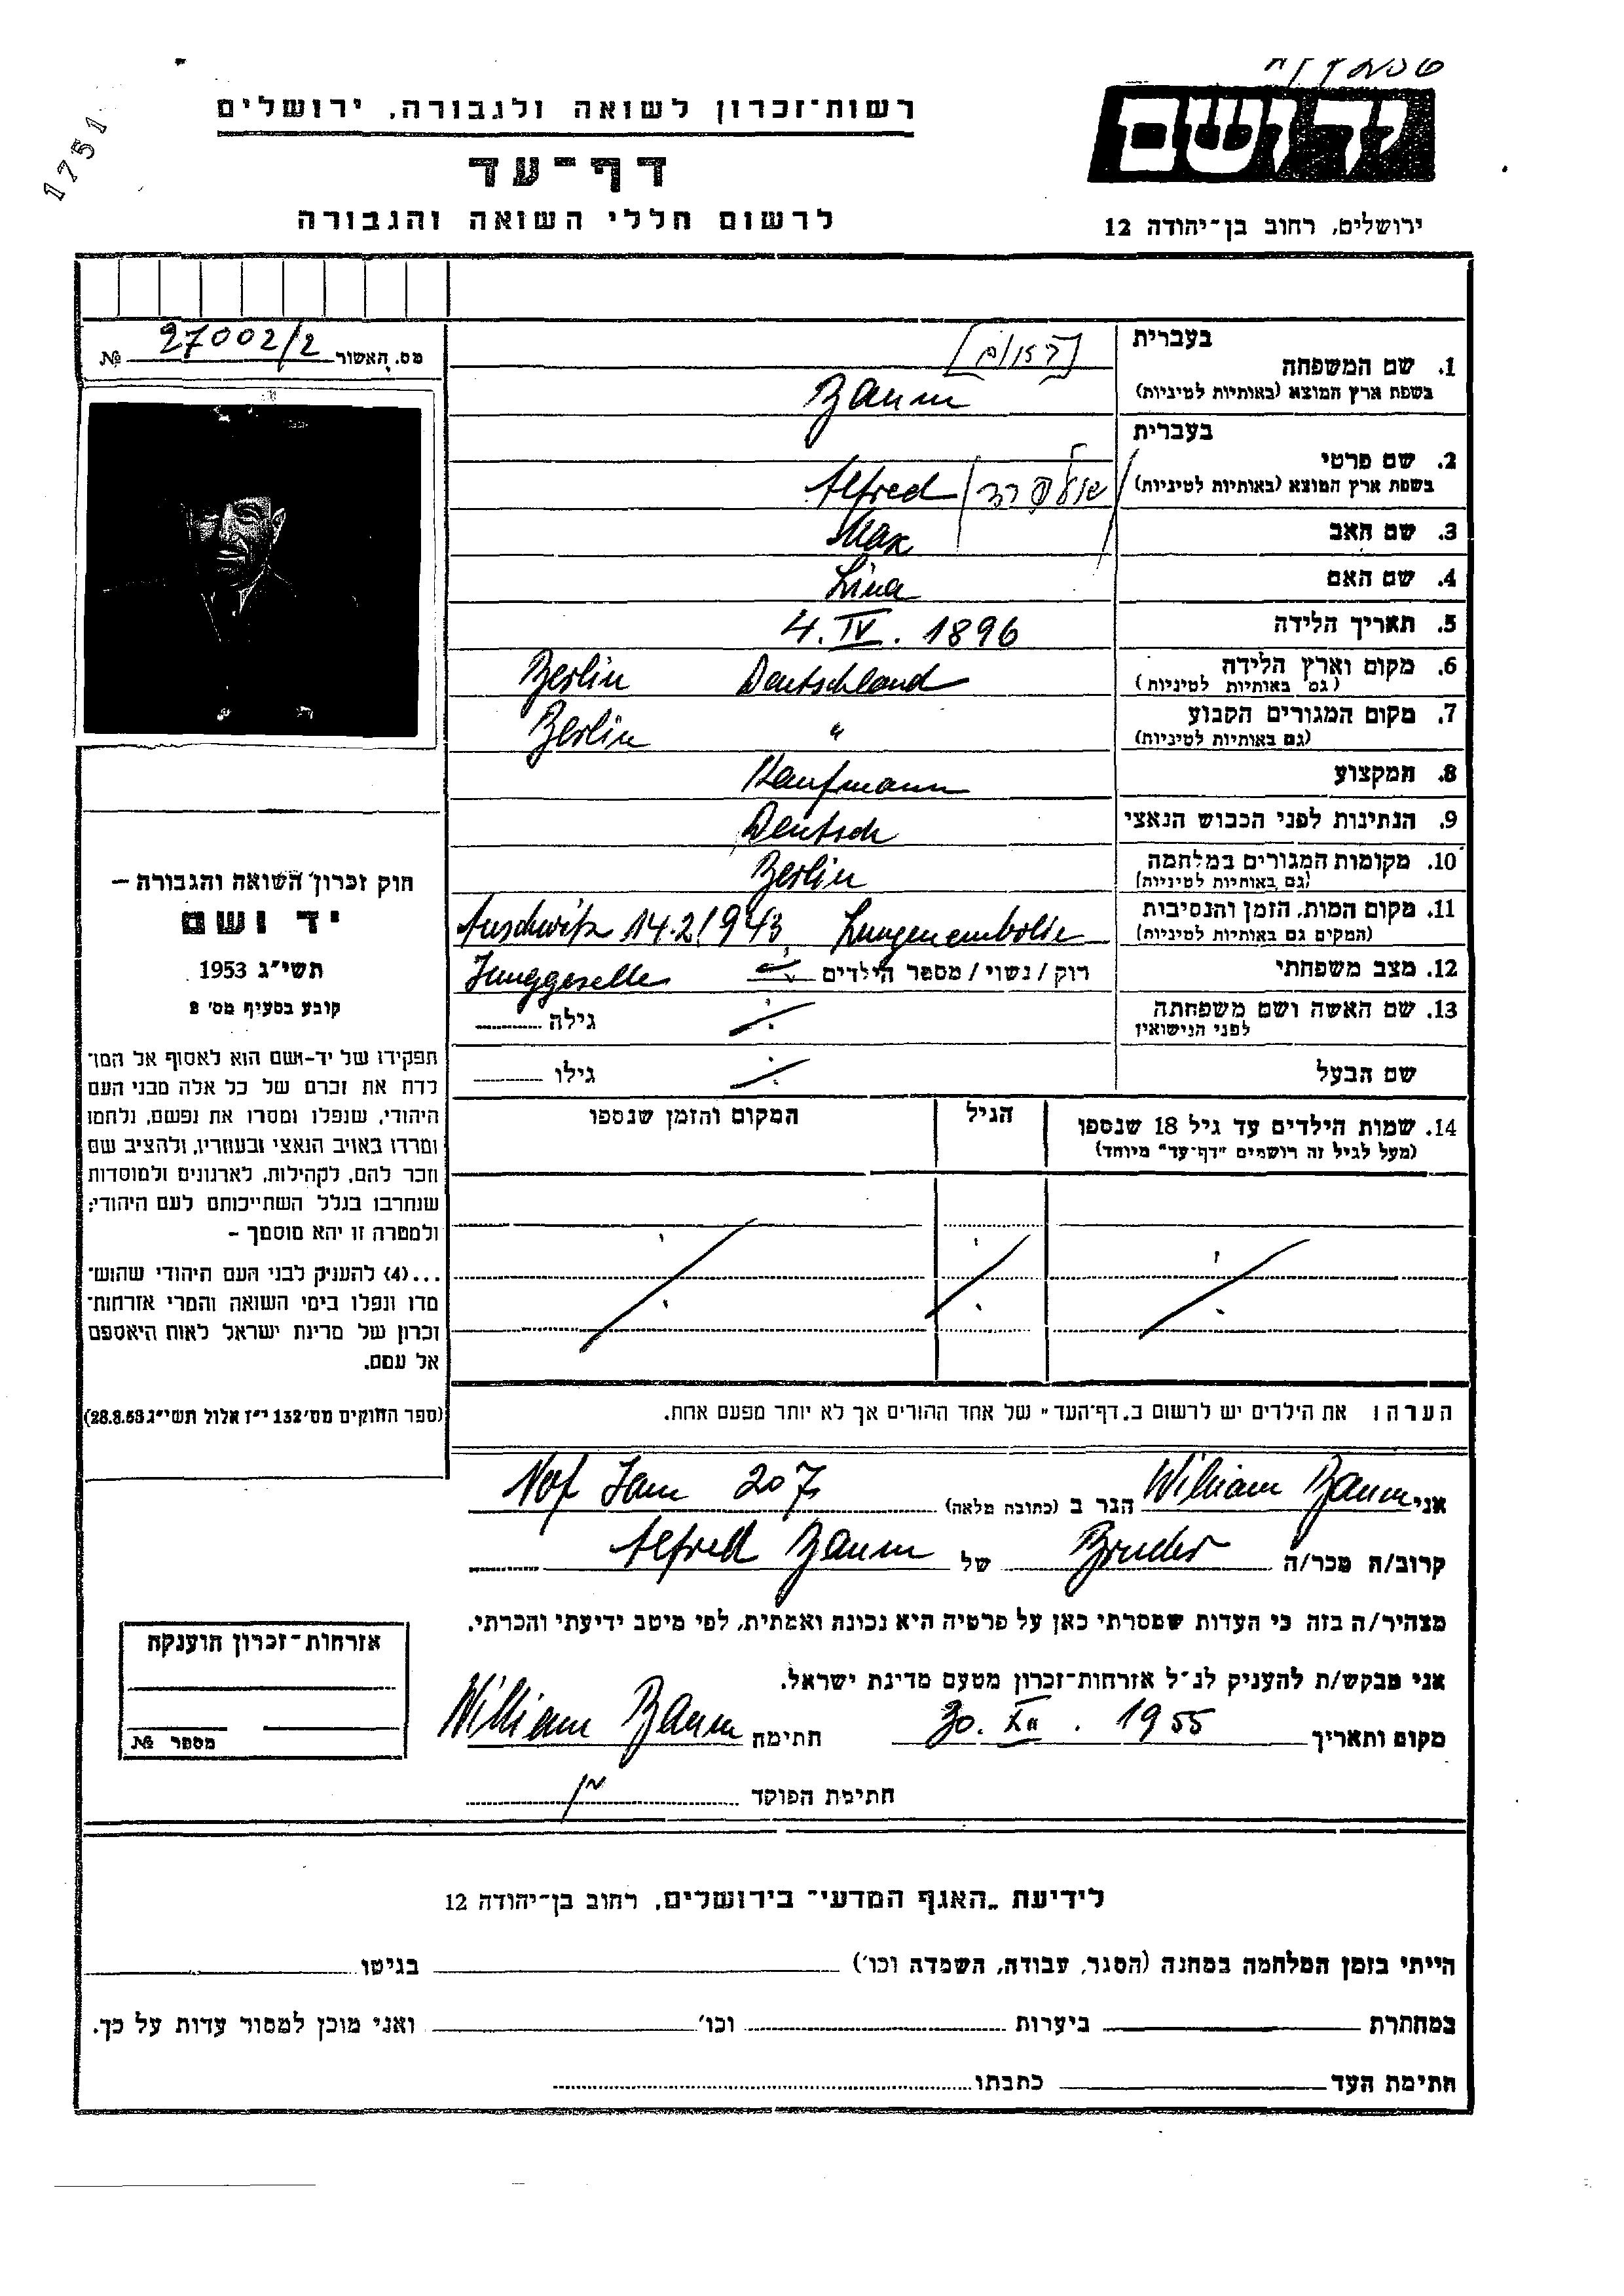 1751
יד ושם
רשות־זכרון לשואה ולגבורה, ירושלים
דף־עד
לרשום חללי השואה והגבורה
ירושלים, רחוב בן־יהודה 12
מס. האשור № 27002/2
בעברית
1. שם המשפחה [באום]
בשפת ארץ המוצא (באותיות לטיניות) Baum
בעברית
2. שם פרטי
בשפת ארץ המוצא (באותיות לטיניות) אלפרד Alfred
3. שם האב Max
4. שם האם Lina
5. תאריך הלידה 4. IV. 1896
6. מקום וארץ הלידה Berlin Deutschland
(גם באותיות לטיניות)
7. מקום המגורים הקבוע Berlin "
(גם באותיות לטיניות)
8. המקצוע Kaufmann
9. הנתינות לפני הכבוש הנאצי Deutsch
10. מקומות המגורים במלחמה Berlin
(גם באותיות לטיניות)
11. מקום המות, הזמן והנסיבות Auschwitz 14.2.1943 Lungenembolie
(המקום גם באותיות לטיניות)
12. מצב משפחתי רוק / נשוי / מספר הילדים Junggeselle
13. שם האשה ושם משפחתה גילה
לפני הנישואין
שם הבעל גילו
14. שמות הילדים עד גיל 18 שנספו הגיל המקום והזמן שנספו
(מעל לגיל זה רושמים "דף־עד" מיוחד)
הערה: את הילדים יש לרשום ב„דף־העד" של אחד ההורים אך לא יותר מפעם אחת.
חוק זכרון השואה והגבורה —
יד ושם
תשי"ג 1953
קובע בסעיף מס' 2
תפקידו של יד-ושם הוא לאסוף אל המו־
לדת את זכרם של כל אלה מבני העם
היהודי, שנפלו ומסרו את נפשם, נלחמו
ומרדו באויב הנאצי ובעוזריו, ולהציב שם
וזכר להם, לקהילות, לארגונים ולמוסדות
שנחרבו בגלל השתייכותם לעם היהודי;
ולמטרה זו יהא מוסמך –
...(4) להעניק לבני העם היהודי שהוש־
מדו ונפלו בימי השואה והמרי אזרחות־
זכרון של מדינת ישראל לאות היאספם
אל עמם.
(ספר החוקים מס' 132 י"ז אלול תשי"ג 28.8.53)
אני William Baum הגר ב (כתובה מלאה) Nof Jam 207
קרוב/ה מכר/ה Bruder של Alfred Baum
מצהיר/ה בזה כי העדות שמסרתי כאן על פרטיה היא נכונה ואמתית, לפי מיטב ידיעתי והכרתי.
אני מבקש/ת להעניק לנ"ל אזרחות־זכרון מטעם מדינת ישראל.
מקום ותאריך 30. XII. 1955 חתימה William Baum
חתימת הפוקד
אזרחות־זכרון הוענקה
מספר №
לידיעת „האגף המדעי" בירושלים, רחוב בן־יהודה 12
הייתי בזמן המלחמה במחנה (הסגר, עבודה, השמדה וכו') בגיטו
במחתרת ביערות וכו' ואני מוכן למסור עדות על כך.
חתימת העד כתבתו